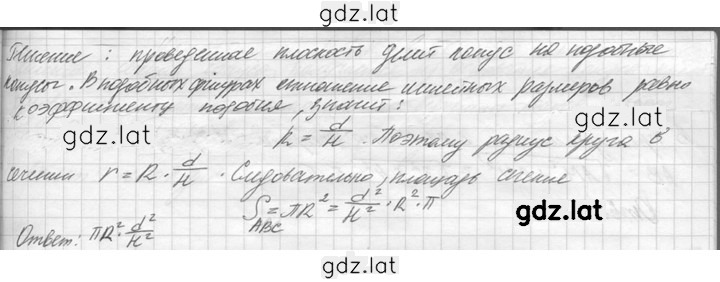 gdz.lat
Решение : проведенная плоскость делит конус на подобные
конусы. В подобных фигурах отношение линейных размеров равно
коэффициенту подобия, значит:
gdz.lat
gdz.lat
k = d/H . Поэтому радиус круга в
сечении r = R · d/H . Следовательно, площадь сечения
S ABC = πR² = d²/H² · R² · π
gdz.lat
Ответ: πR² · d²/H²
gdz.lat